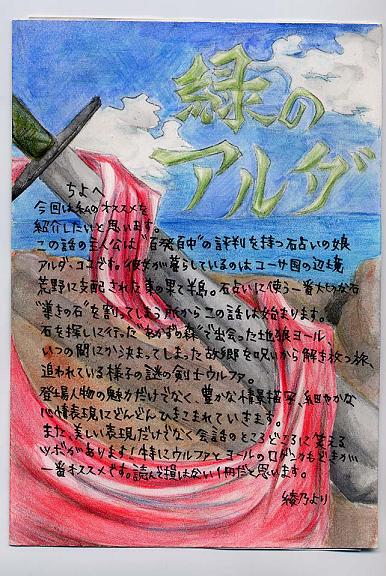 緑の
アルダ
ちよへ
今回は私のオススメを
紹介したいと思います。
この話の主人公は"石発百中"の評判を持つ石占いの娘
アルダ・ココです。彼女が暮らしているのはユーサ国の辺境
荒野に支配された東の果て半島。石占いに使う一番大切な石
"導きの石"を割ってしまう所からこの話は始まります。
石を探しに行った"あかずの森"で出会った地狼ヨール、
いつの間にか決まってしまった故郷を呪いから解き放つ旅、
追われている様子の謎の剣士ウルファ。
登場人物の魅力だけでなく、豊かな情景描写、細やかな
心情表現にどんどんひきこまれていきます。
また、美しい表現だけでなく会話のところどころに笑える
ツボがあります!特にウルファとヨールの
一番オススメです。読んで損はない1冊だと思います。
綾乃より